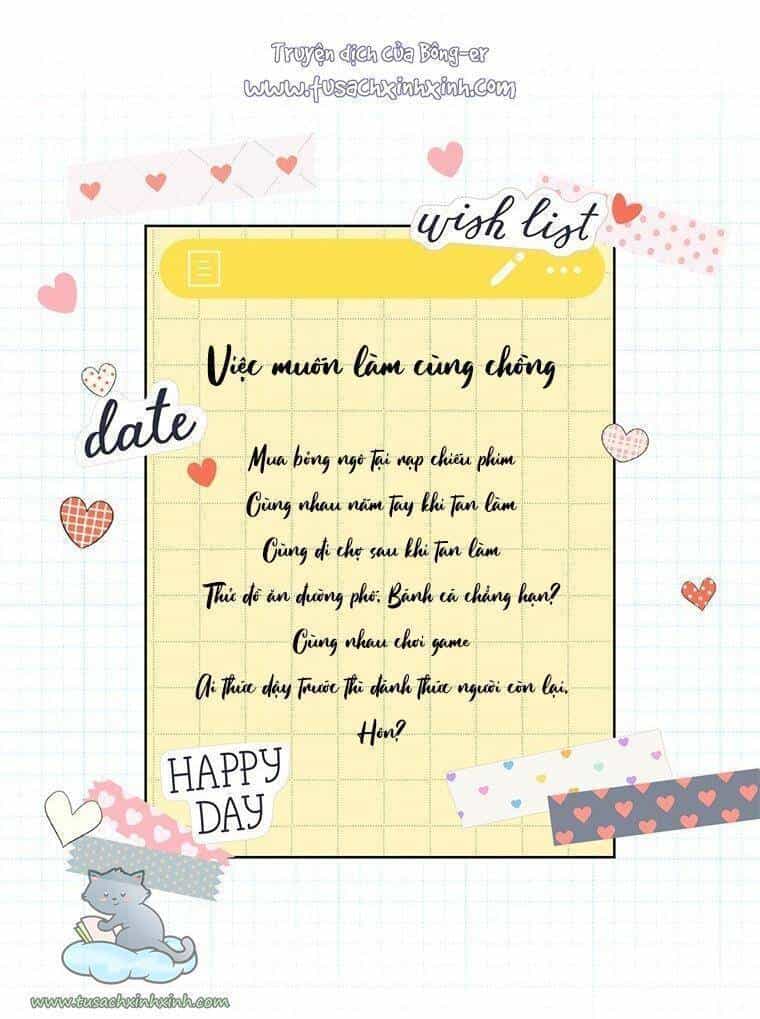 Truyện dịch của Bông-er
www.tusachxinhxinh.com
wish list
Việc muốn làm cùng chồng
date
Mua bỏng ngô tại rạp chiếu phim
Cùng nhau nắm tay khi tan làm
Cùng đi chợ sau khi tan làm
Thức đồ ăn đường phố. Bánh cá chẳng hạn?
Cùng nhau chơi game
Ai thức dậy trước thì đánh thức người còn lại.
Hôn?
HAPPY
DAY
www.tusachxinhxinh.com